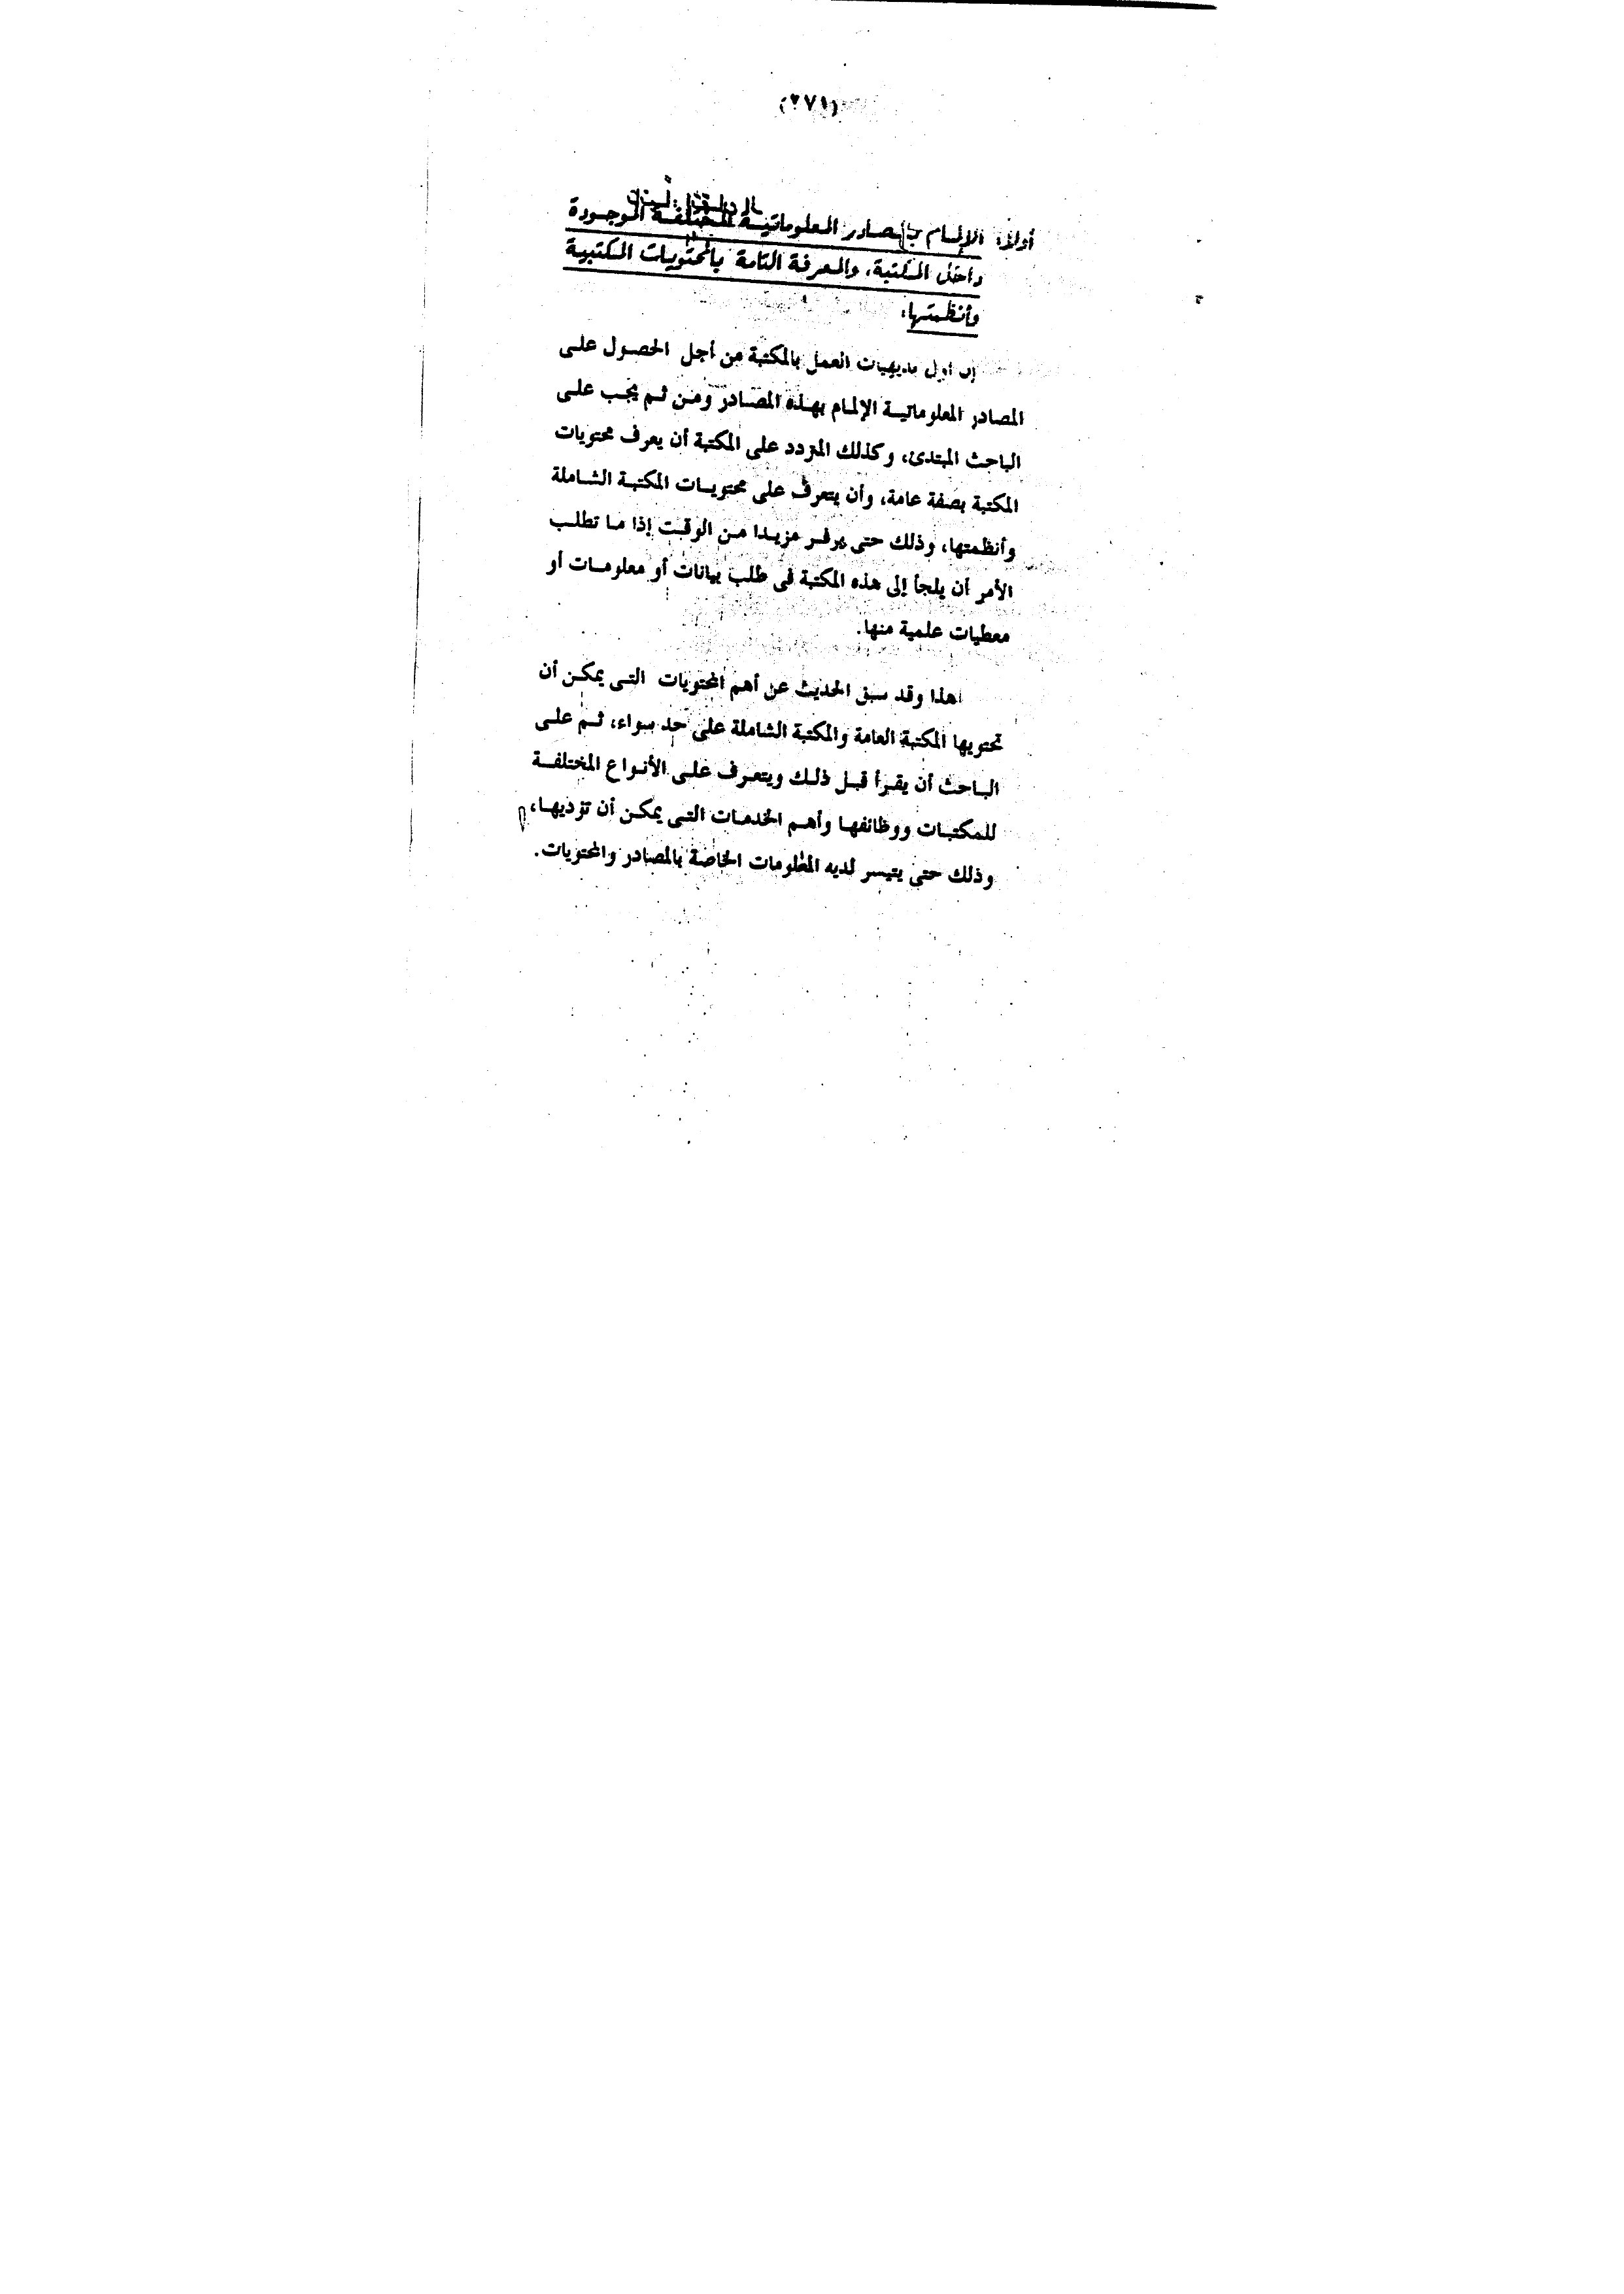 (٢٧١)
أولا: الإلمام بالمصادر المعلوماتية المختلفة الموجودة
داخل المكتبة، والمعرفة التامة بالمحتويات المكتبية
وأنظمتها:
إن أول بديهيات العمل بالمكتبة من أجل الحصول على
المصادر المعلوماتية الإلمام بهذه المصادر ومن ثم يجب على
الباحث المبتدئ، وكذلك المتردد على المكتبة أن يعرف محتويات
المكتبة بصفة عامة، وأن يتعرف على محتويات المكتبة الشاملة
وأنظمتها، وذلك حتى يوفر مزيدا من الوقت إذا ما تطلب
الأمر أن يلجأ إلى هذه المكتبة فى طلب بيانات أو معلومات أو
معطيات علمية منها.
هذا وقد سبق الحديث عن أهم المحتويات التى يمكن أن
تحتويها المكتبة العامة والمكتبة الشاملة على حد سواء، ثم على
الباحث أن يقرأ قبل ذلك ويتعرف على الأنواع المختلفة
للمكتبات ووظائفها وأهم الخدمات التى يمكن أن تؤديها،
وذلك حتى يتيسر لديه المعلومات الخاصة بالمصادر والمحتويات.